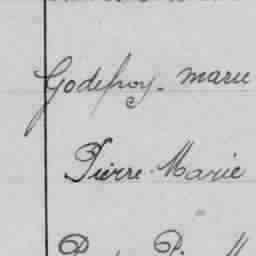 Godefroy - marie
Pierre Marie